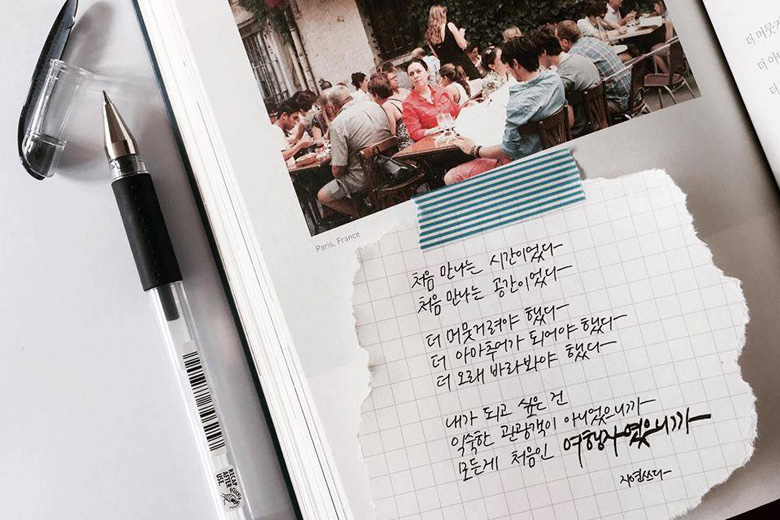 Paris, France
처음 만나는 시간이었다
처음 만나는 공간이었다
더 머뭇거려야 했다
더 아마추어가 되어야 했다
더 오래 바라봐야 했다
내가 되고 싶은 건
익숙한 관광객이 아니었으니까
모든게 처음인 여행자였으니까
지연쓰다
더 머뭇거
더 아
더
RECAP
AFTER
USE